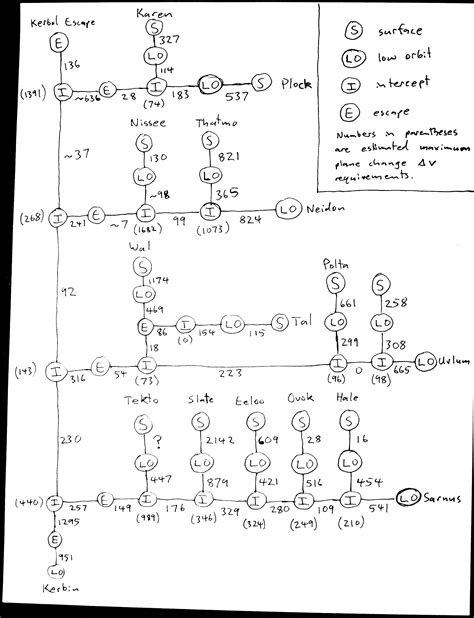 Kerbol Escape
Karen
E
S
136
327
LO
114
(1391) I ~636 E 28 I 183 LO 537 S Plock
(74)
S surface
LO low orbit
I intercept
E escape
Numbers in parentheses
are estimated maximum
plane change ΔV
requirements.
~37
Nissee
Thatmo
S
S
130
821
LO
LO
~98
365
(268) I 241 E ~7 I 99 I 824 LO Neidon
(1682)
(1073)
92
Wal
S
1174
LO
469
E 86 I 154 LO 115 S Tal
(0)
18
Polta
S
S
661
258
LO
LO
299
308
(143) I 316 E 54 I 223 I 0 I 665 LO Urlum
(73)
(96)
(98)
230
Tekto
Slate
Eeloo
Ovok
Hale
S
S
S
S
S
?
2142
609
28
16
LO
LO
LO
LO
LO
447
879
421
516
454
(440) I 257 E 149 I 176 I 329 I 280 I 109 I 541 LO Sarnus
(989)
(346)
(324)
(249)
(210)
1295
E
951
LO
Kerbin